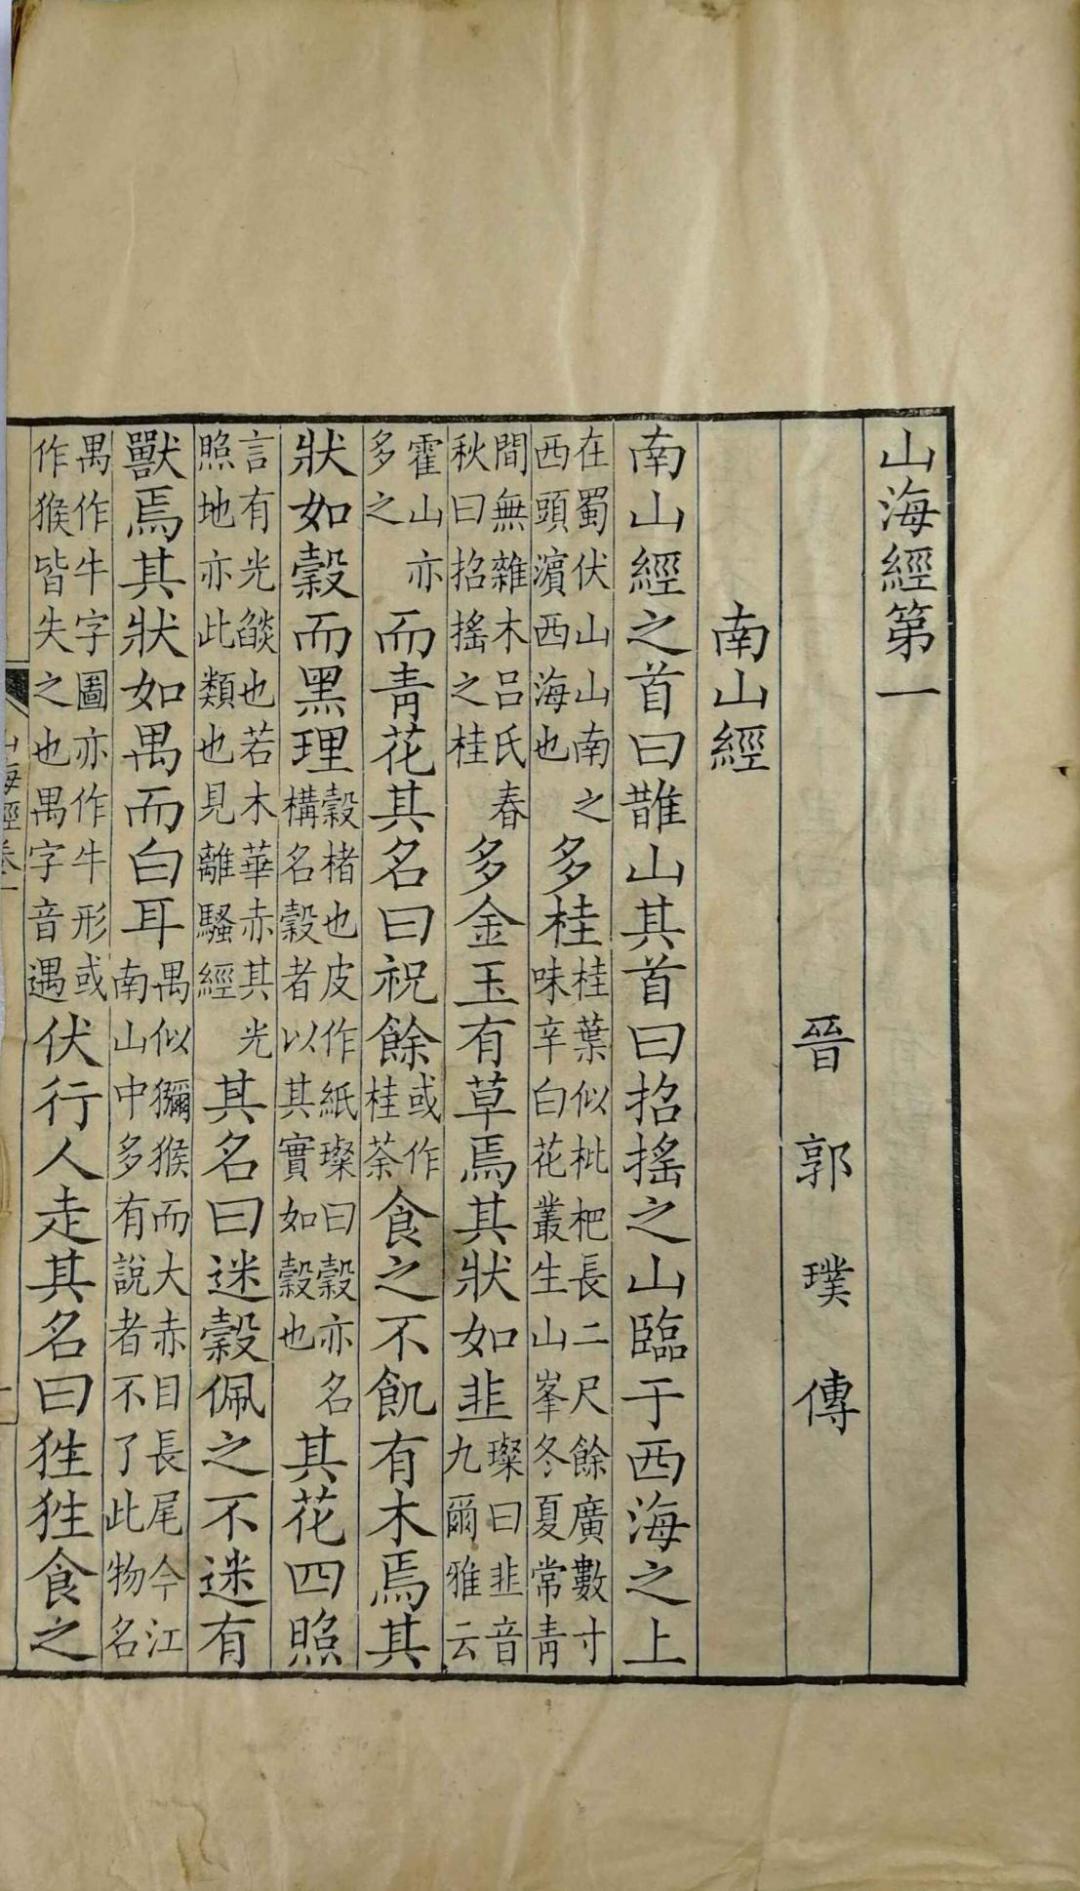 山海經第一
晉郭璞傳
南山經
南山經之首曰䧿山其首曰招搖之山臨于西海之上
在蜀伏山山南之西頭濱西海也多桂桂葉似枇杷長二尺餘廣數寸味辛白花叢生山峯冬夏常青
間無雜木呂氏春秋曰招搖之桂多金玉有草焉其狀如韭璨曰韭音九爾雅云
霍山亦多之而青花其名曰祝餘或作桂荼食之不飢有木焉其
狀如穀而黑理穀楮也皮作紙璨曰穀亦名構名穀者以其實如穀也其花四照
言有光燄也若木華赤其光照地亦此類也見離騷經其名曰迷穀佩之不迷有
獸焉其狀如禺而白耳禺似獼猴而大赤目長尾今江南山中多有說者不了此物名
禺作牛字圖亦作牛形或作猴皆失之也禺字音遇伏行人走其名曰狌狌食之
山海經卷一